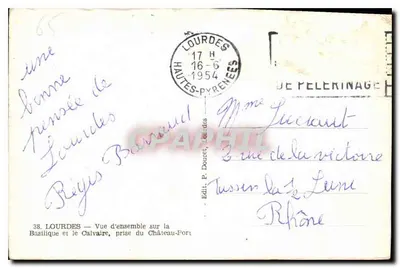 une
bonne
pensée de
Lourdes
Régis
38. LOURDES — Vue d'ensemble sur la
Basilique et le Calvaire, prise du Château-Fort
Edit. P. Doucet, Lourdes
LOURDES
17 H
16-6
1954
HAUTES-PYRENEES
DE PELERINAGE
Mme
3 rue de la victoire
Tassin la 1/2 Lune
Rhône
CPARAMA